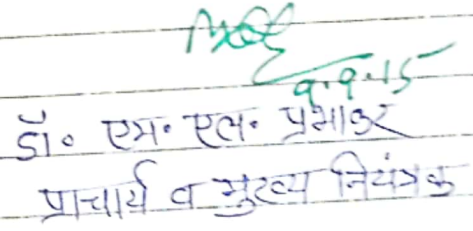 9.9.15
डॉ० एम० एल० प्रभाकर
प्राचार्य व मुख्य नियंत्रक